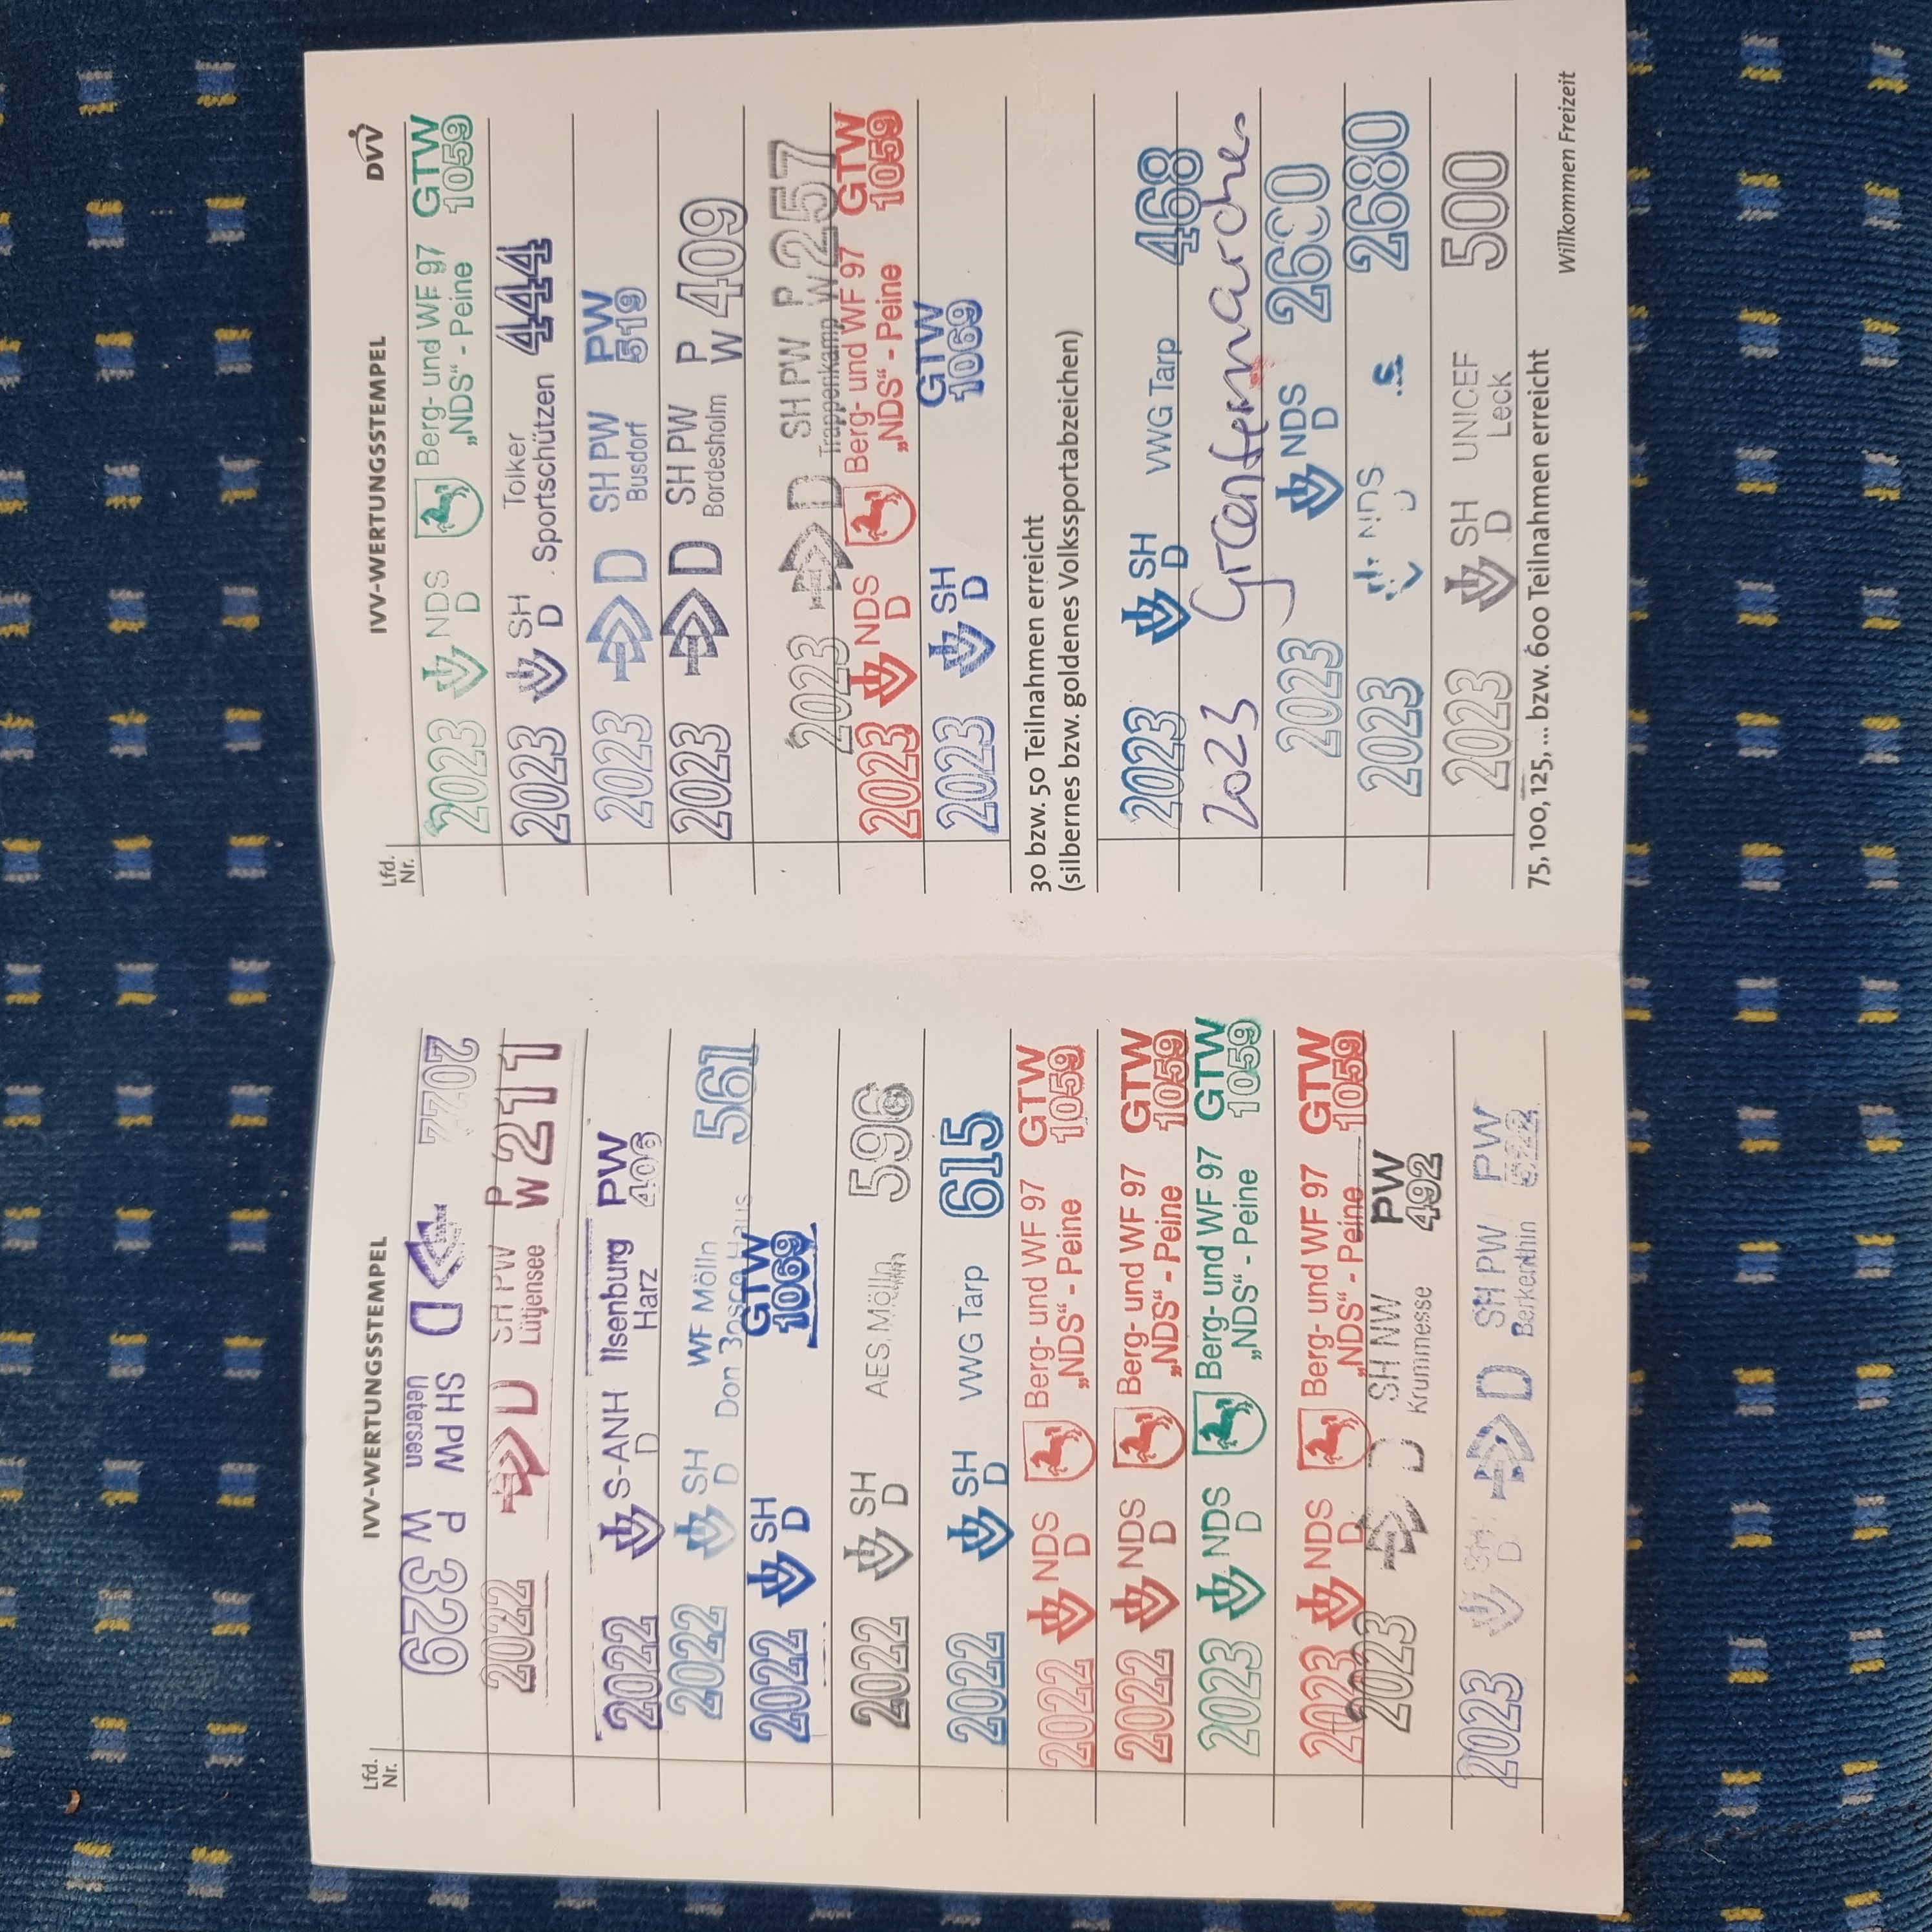 IVV-WERTUNGSSTEMPEL
Lfd.
Nr.
329 P W SH PW Uetersen D 2022
2022 D SH PW Lütjensee P W 211
2022 S-ANH D Ilsenburg Harz PW 406
2022 SH D WF Mölln Don Bosco Haus 561
2022 SH D GTW 1069
2022 SH D AES Mölln 596
2022 SH D VWG Tarp 615
2022 NDS D Berg- und WF 97 „NDS“ - Peine GTW 1059
2022 NDS D Berg- und WF 97 „NDS“ - Peine GTW 1059
2023 NDS D Berg- und WF 97 „NDS“ - Peine GTW 1059
2023 NDS D Berg- und WF 97 „NDS“ - Peine GTW 1059
2023 D SH NW Krummesse PW 492
2023 SH D D SH PW Berkenthin PW
IVV-WERTUNGSSTEMPEL
DVV
Lfd.
Nr.
2023 NDS D Berg- und WF 97 „NDS“ - Peine GTW 1059
2023 SH D Tolker Sportschützen 444
2023 D SH PW Busdorf PW 519
2023 D SH PW Bordesholm P W 409
2023 D SH PW Trappenkamp P W 257
2023 NDS D Berg- und WF 97 „NDS“ - Peine GTW 1059
2023 SH D GTW 1069
30 bzw. 50 Teilnahmen erreicht
(silbernes bzw. goldenes Volkssportabzeichen)
2023 SH D VWG Tarp 468
2023
2023 NDS D
2023 NDS 2680
2023 SH D UNICEF Leck 500
75, 100, 125, ... bzw. 600 Teilnahmen erreicht
Willkommen Freizeit